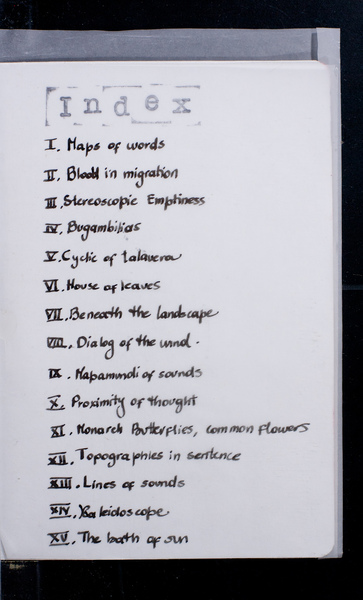 Index
I. Maps of words
II. Blood in migration
III. Stereoscopic Emptiness
IV. Bugambilias
V. Cyclic of talavera
VI. House of leaves
VII. Beneath the landscape
VIII. Dialog of the wind.
IX. Mapamundi of sounds
X. Proximity of thought
XI. Monarch Butterflies, common flowers
XII. Topographies in sentence
XIII. Lines of sounds
XIV. Kaleidoscope
XV. The bath of sun